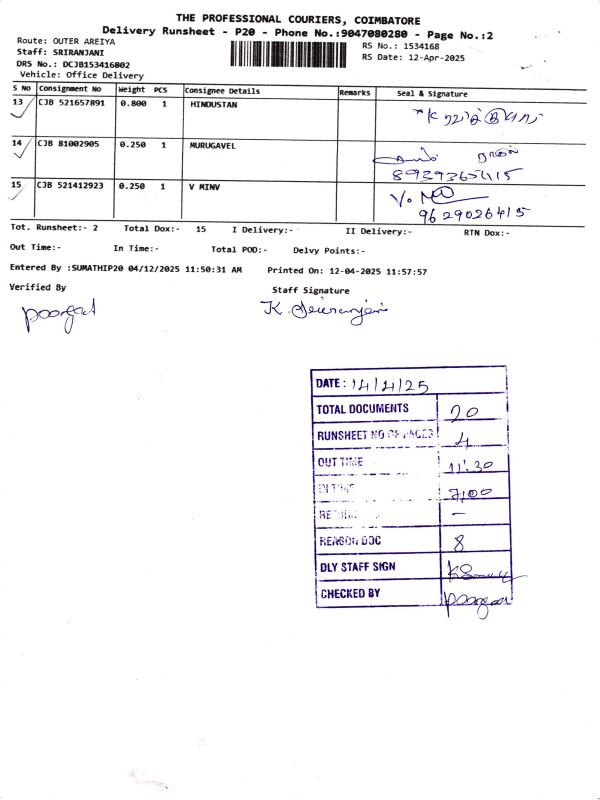 THE PROFESSIONAL COURIERS, COIMBATORE
Delivery Runsheet - P20 - Phone No.:9047080280 - Page No.:2
Route: OUTER AREIYA
RS No.: 1534168
Staff: SRIRANJANI
RS Date: 12-Apr-2025
DRS No.: DCJB153416802
Vehicle: Office Delivery
S No Consignment No Weight PCS Consignee Details Remarks Seal & Signature
13 CJB 521657891 0.800 1 HINDUSTAN
14 CJB 81002905 0.250 1 MURUGAVEL
8939365415
15 CJB 521412923 0.250 1 V MINV
9629026415
Tot. Runsheet:- 2 Total Dox:- 15 I Delivery:- II Delivery:- RTN Dox:-
Out Time:- In Time:- Total POD:- Delvy Points:-
Entered By :SUMATHIP20 04/12/2025 11:50:31 AM Printed On: 12-04-2025 11:57:57
Verified By Staff Signature
DATE : 14/4/25
TOTAL DOCUMENTS 20
RUNSHEET NO OF PAGES 4
OUT TIME 11:30
IN TIME 7:00
REASON DOC 8
DLY STAFF SIGN
CHECKED BY